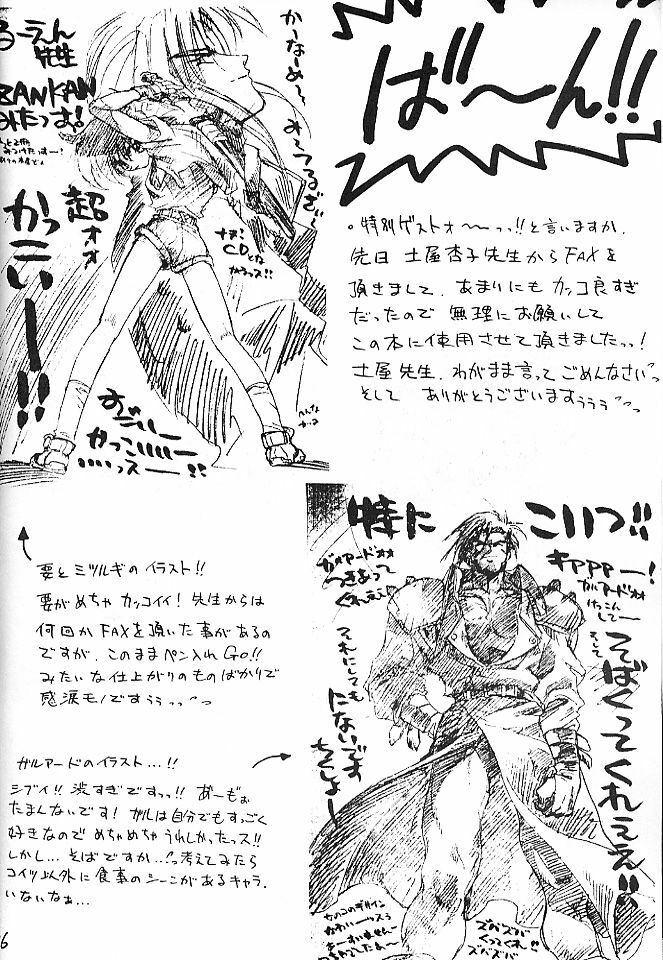 ば〜ん!!
。特別ゲストォ〜ーっっ!!と言いますか、
先日 土屋杏子先生からFAXを
頂きまして、あまりにも カッコ良すぎ
だったので 無理にお願いして
この本に使用させて頂きましたっっ!
土屋先生、わがまま言って ごめんなさいっ
そして ありがとうございますぅぅぅ
るーえん
先生
ZANKAN
みたっす!
かーなーめ〜
超ォオ
かっこいー!!
CDとな
すげいー
かっこいいいー
いいっスー!!
要とミツルギの イラスト!!
要がめちゃ カッコイイ! 先生からは
何回か FAXを頂いた事があるの
ですが、このまま ペン入れ Go!!
みたいな仕上がりのものばかりで
感涙モノですぅぅ
特に こいつ!!
ガルアードォオ
つきあって
くれぇぇ
キアアアー!
ガルアードォオ
けっこん
してー
そして
そばくってくれええ!!
それにしても
にないです
ちくしょー
ガルアードのイラスト…!!
シブイ!! 渋すぎですっっ!! あーもぉ
たまんないです! ガルは自分でもすっごく
好きなので めちゃめちゃ うれしかったっス!!
しかし… そばですか… 考えてみたら
コイツ以外に食事のシーンがあるキャラ、
いないなぁ…
女のコのデザイン
かわいーっスぅ
ズバズバ
くってくれ!!
ズバズバ
6